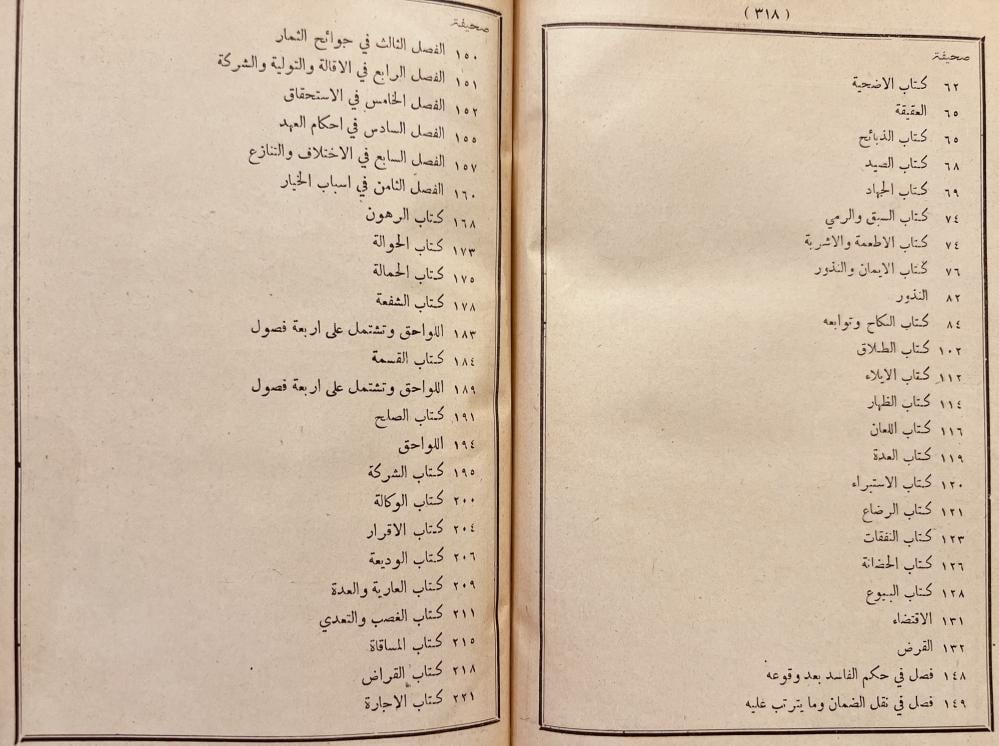 ( ٣١٨ )
صحيفة
٦٢ كتاب الاضحية
٦٥ العقيقة
٦٥ كتاب الذبائح
٦٨ كتاب الصيد
٦٩ كتاب الجهاد
٧٤ كتاب السبق والرمي
٧٤ كتاب الاطعمة والاشربة
٧٦ كتاب الايمان والنذور
٨٢ النذور
٨٤ كتاب النكاح وتوابعه
١٠٢ كتاب الطلاق
١١٢ كتاب الايلاء
١١٤ كتاب الظهار
١١٦ كتاب اللعان
١١٩ كتاب العدة
١٢٠ كتاب الاستبراء
١٢١ كتاب الرضاع
١٢٣ كتاب النفقات
١٢٦ كتاب الحضانة
١٢٨ كتاب البيوع
١٣١ الاقتضاء
١٣٢ القرض
١٤٨ فصل في حكم الفاسد بعد وقوعه
١٤٩ فصل في نقل الضمان وما يترتب عليه
صحيفة
١٥٠ الفصل الثالث في جوائح الثمار
١٥١ الفصل الرابع في الاقالة والتولية والشركة
١٥٢ الفصل الخامس في الاستحقاق
١٥٥ الفصل السادس في احكام العهد
١٥٧ الفصل السابع في الاختلاف والتنازع
١٦٠ الفصل الثامن في اسباب الخيار
١٦٨ كتاب الرهون
١٧٣ كتاب الحوالة
١٧٥ كتاب الحمالة
١٧٨ كتاب الشفعة
١٨٣ اللواحق وتشتمل على اربعة فصول
١٨٤ كتاب القسمة
١٨٩ اللواحق وتشتمل على اربعة فصول
١٩١ كتاب الصلح
١٩٤ اللواحق
١٩٥ كتاب الشركة
٢٠٠ كتاب الوكالة
٢٠٤ كتاب الاقرار
٢٠٦ كتاب الوديعة
٢٠٩ كتاب العارية والعدة
٢١١ كتاب الغصب والتعدي
٢١٥ كتاب المساقاة
٢١٨ كتاب القراض
٢٢١ كتاب الاجارة